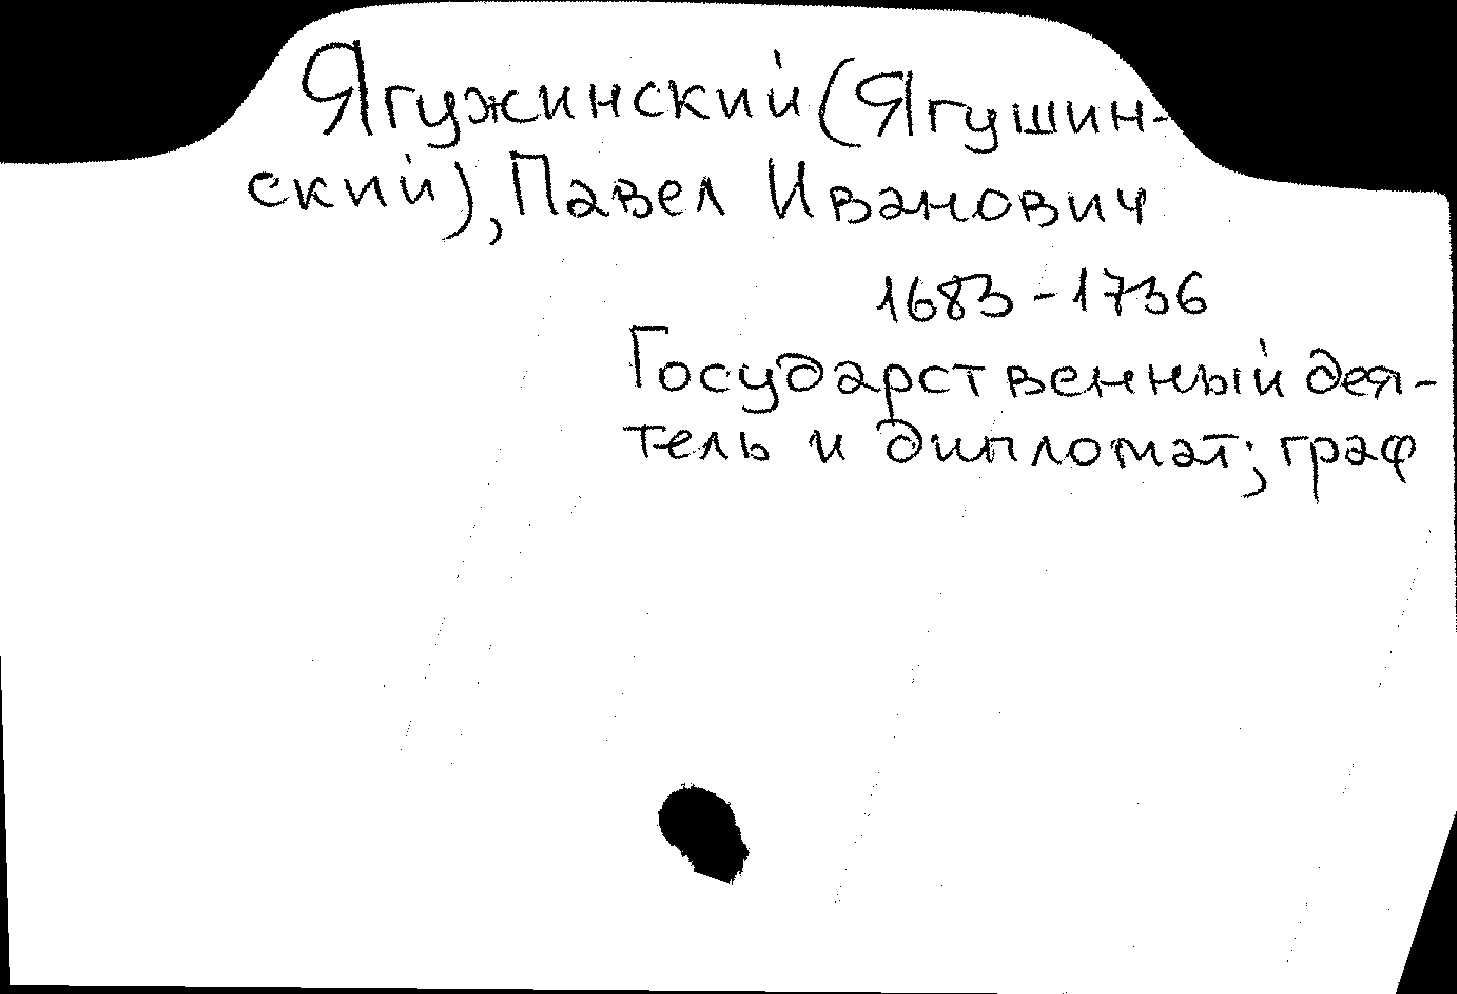 Ягужинский (Ягушин-
ский), Павел Иванович
1683-1736
Государственный дея-
тель и дипломат; граф